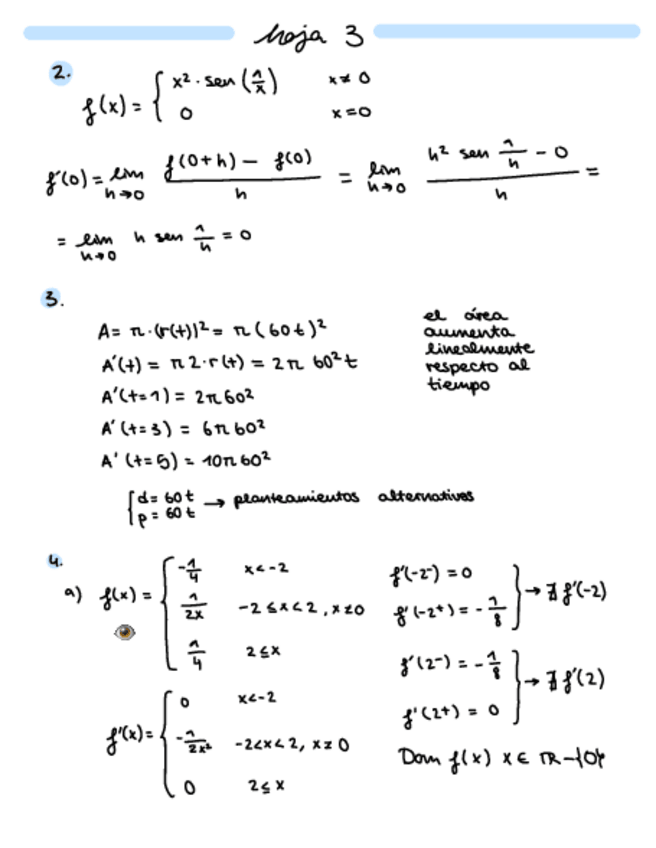 Hoja 3
2.
f(x) = { x² · sen (1/x)   x ≠ 0
0   x = 0
f'(0) = lim h→0 (f(0+h) − f(0))/h = lim h→0 (h² sen 1/h − 0)/h =
= lim h→0 h sen 1/h = 0
3.
A = π · (r(t))² = π (60t)²
A'(t) = π 2 · r(t) = 2π 60² t
A'(t=1) = 2π 60²
A' (t=3) = 6π 60²
A' (t=5) = 10π 60²
el área
aumenta
linealmente
respecto al
tiempo
{ d = 60t
p = 60t → planteamientos alternativos
4.
a) f(x) = { -1/4   x < -2
1/2x   -2 ≤ x < 2, x ≠ 0
1/4   2 ≤ x
f'(-2⁻) = 0
f'(-2⁺) = -1/8 } → ∄ f'(-2)
f'(2⁻) = -1/8
f'(2⁺) = 0 } → ∄ f'(2)
f'(x) = { 0   x < -2
-1/2x²   -2 < x < 2, x ≠ 0
0   2 ≤ x
Dom f(x) x ∈ ℝ - {0}